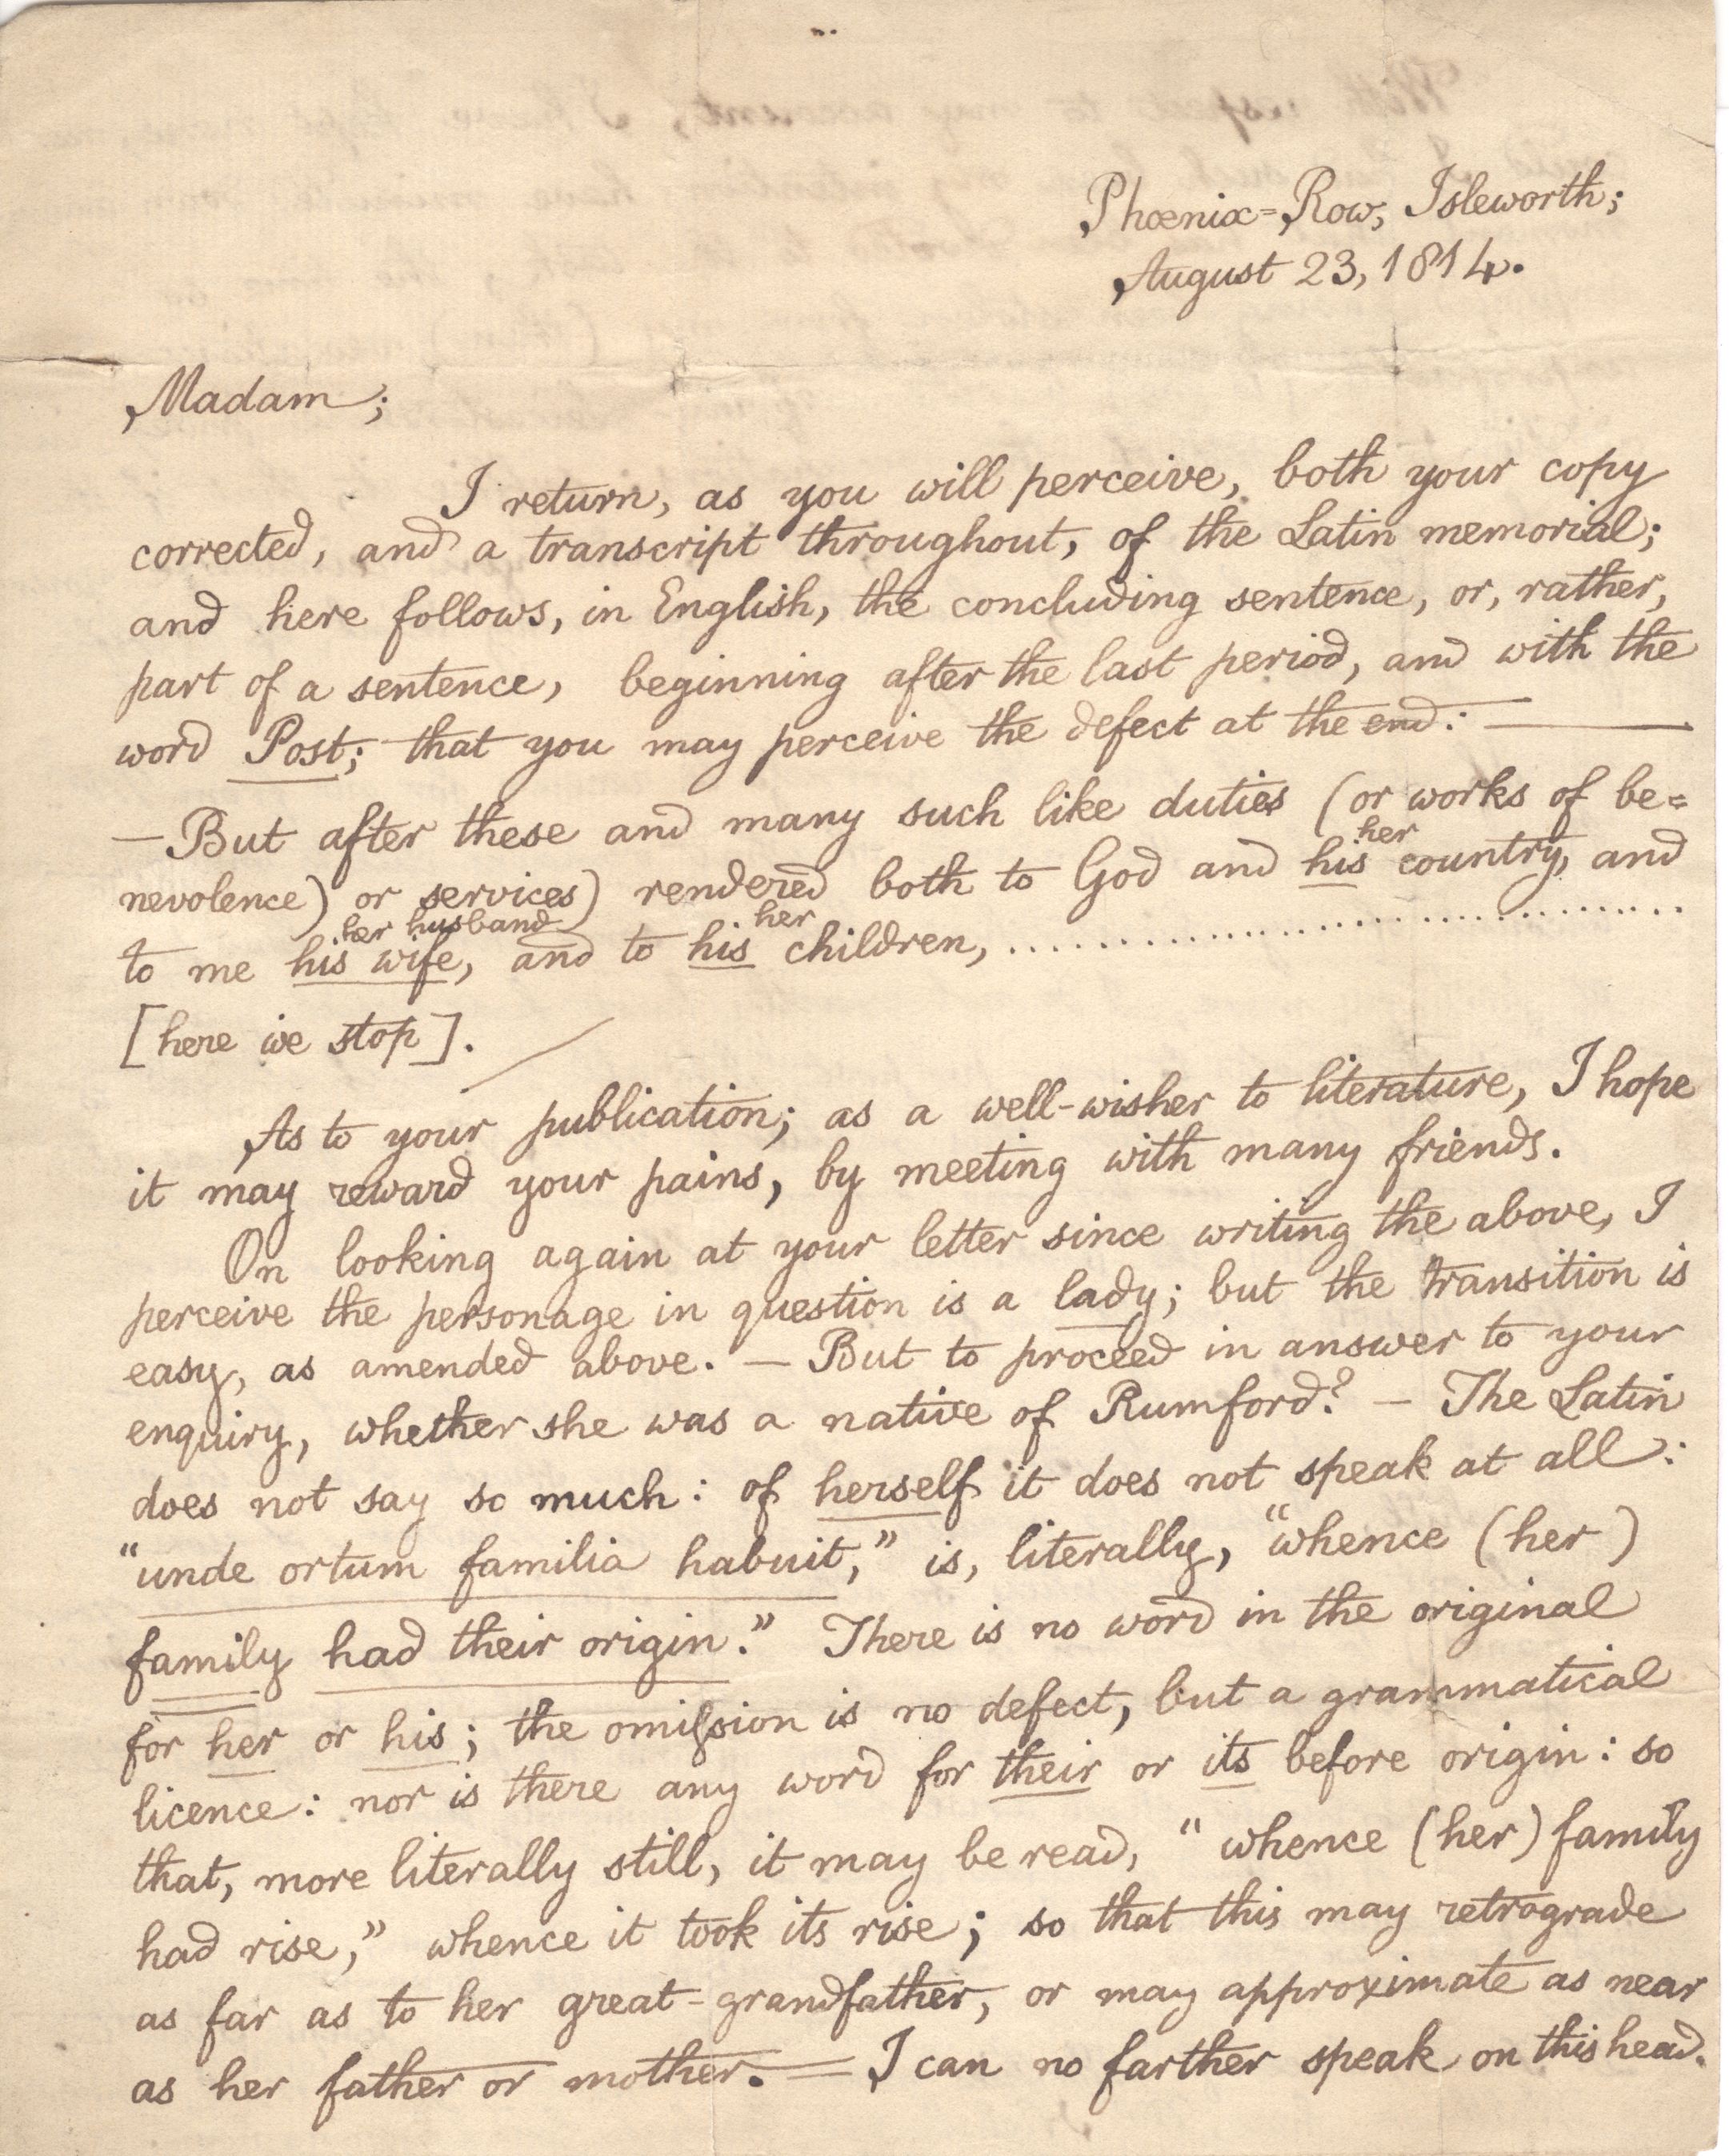 Phœnix=Row, Isleworth;
August 23, 1814.
Madam;
I return, as you will perceive, both your copy
corrected, and a transcript throughout, of the Latin memorial;
and here follows, in English, the concluding sentence, or, rather,
part of a sentence, beginning after the last period, and with the
word Post; that you may perceive the defect at the end: —
—But after these and many such like duties (or works of be=
her
nevolence) or services) rendered both to God and his country, and
her husband her
to me his wife, and to his children, ..............................
[here we stop].
As to your publication; as a well-wisher to literature, I hope
it may reward your pains, by meeting with many friends.
On looking again at your letter since writing the above, I
perceive the personage in question is a lady; but the transition is
easy, as amended above. — But to proceed in answer to your
enquiry, whether she was a native of Rumford? — The Latin
does not say so much: of herself it does not speak at all:
“unde ortum familia habuit,” is, literally, “whence (her)
family had their origin.” There is no word in the original
for her or his; the omiſsion is no defect, but a grammatical
licence: nor is there any word for their or its before origin: so
that, more literally still, it may be read, “whence (her) family
had rise,” whence it took its rise; so that this may retrograde
as far as to her great-grandfather, or may approximate as near
as her father or mother. = I can no farther speak on this head.